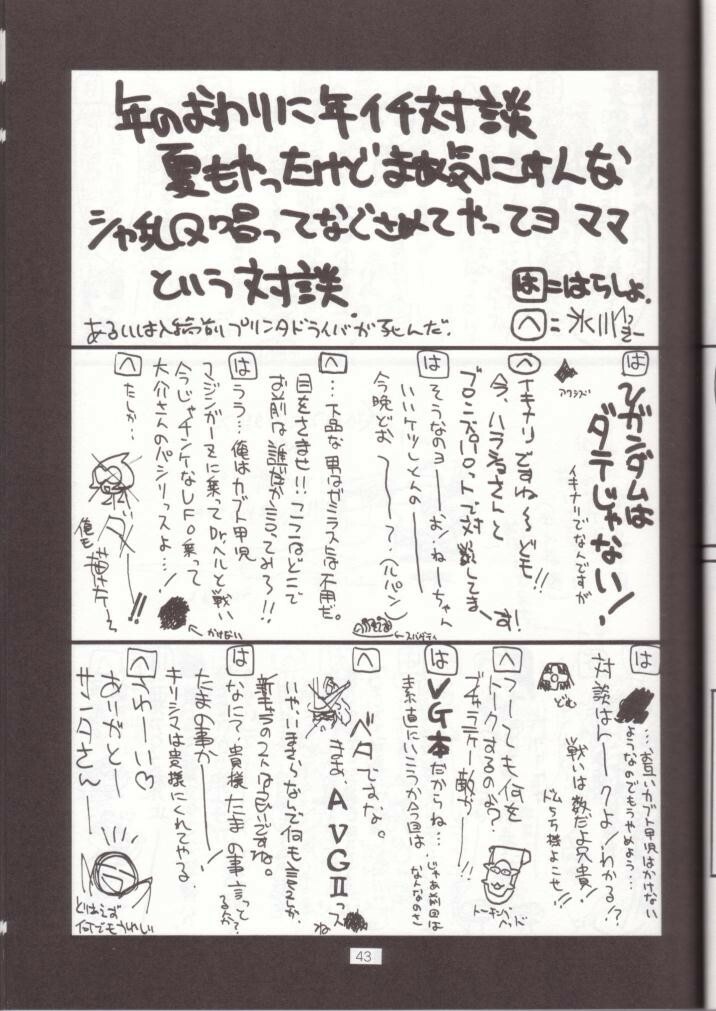 年のおわりに年イチ対談
夏もやったけどまあ気にすんな
シャ乱Q唱ってなぐさめてやってヨ ママ
という対談.
は=はらしょ.
へ=氷川
あるいは入稿前プリンタドライバが死んだ.
は
Vガンダムは
ダテじゃない!
イキナリでなんですが
アクシズ
へ
イキナリですね〜ども!!
今、ハラショさんと
ブロンズパロットで対談してます!
は
そうなのヨーーお!ねーちゃん
いいケツしとんのーー
今晩どおーーって、(パパン)
←スパゲティ
へ
…下品な男はゼミラスには不用だ。
目をさませ!!ここはどこで
お前は誰だか言ってみろ!!
は
うう…俺はカブト甲児
マジンガーZに乗ってDr.ヘルと戦い
今じゃチンケなUFO乗って
大介さんのパシリっスよ…!
←かけない
へ
たしか…
ダーー!!
俺も描けたよ
は
…お互いカブト甲児はかけない
ようなのでもうやめよう…
対談はトークよ!わかる!?
戦いは数だよ兄貴!
ドムら5様よこせ!!
どむ
へ
つーても何を
トークするのか?
ブギャラテー敵がー!!
トーキングヘッド
は
VG本だからね…
素直にいこうか今回は
じゃあ前回は
なんなのさ
へ
ベタですな。
まま、AVGIIっスね
いや、いまさらなんで何も言えんが、
新キャラの2人は良いですね。
は
なにて、貴様たまの事言ってるか?
たまの事かーーー!
キリシマは貴様にくれてやる
へ
うわーい♡
ありがとー
サンタさんーー
とりあえず
何でもうれしい
43